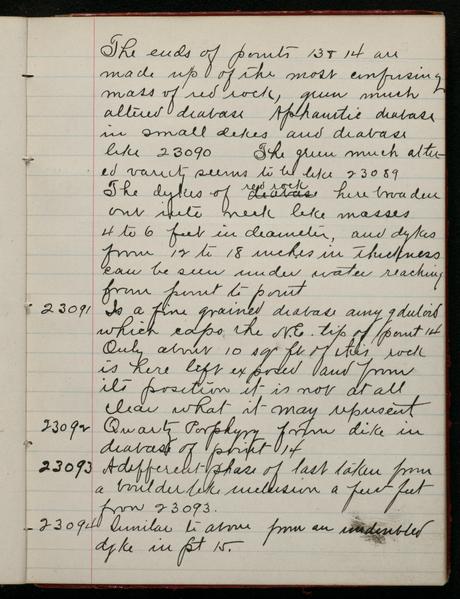 The ends of points 13 & 14 are
made up of the most confusing
mass of red rock, green much
altered diabase Aphanitic diabase
in small dikes and diabase
like 23090 The green much alter-
ed variety seems to be like 23089
The dykes of red rock here broaden
out into neck like masses
4 to 6 feet in diameter, and dykes
from 12 to 18 inches in thickness
can be seen under water reaching
from point to point
23091 Is a fine grained diabase amygduloid
which caps the N.E. tip of point 14
Only about 10 sqr ft of this rock
is here left exposed and from
its position it is not at all
clear what it may represent
23092 Quartz Porphyry from dike in
diabase of point 14
23093 A different phase of last taken from
a boulder like inclusion a few feet
from 23093.
23094 Similar to above from an
dyke in pt 15.